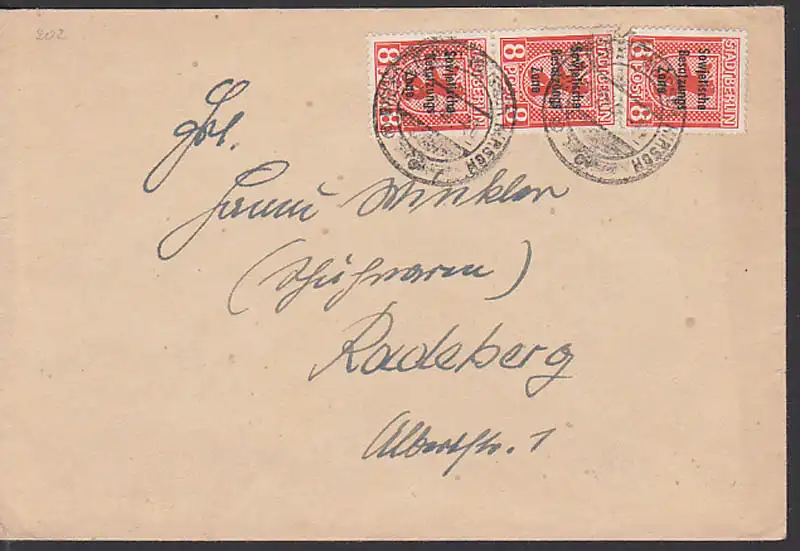 202
STADT BERLIN
8 POST 8
Sowjetische
Besatzungs
Zone
STADT BERLIN
8 POST 8
Sowjetische
Besatzungs
Zone
STADT BERLIN
8 POST 8
Sowjetische
Besatzungs
Zone
Winkler
(Schuhwaren)
Radeberg
Albertstr. 1